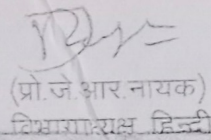 (प्रो.जे.आर.नायक)
विभागाध्यक्ष हिन्दी